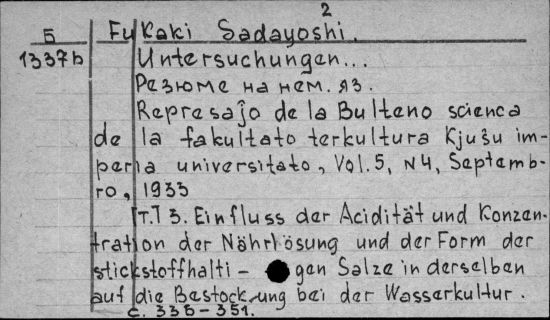 2
Б Fukaki Sadayoshi.
1337b Untersuchungen...
Резюме на нем. яз.
Represaĵo de la Bulteno scienca
de la fakultato terkultura Kjuŝu im-
peria universitato, Vol. 5, N4, Septemb-
ro, 1933
[т.] 3. Einfluss der Acidität und Konzen-
tration der Nährlösung und der Form der
stickstoffhalti- gen Salze in derselben
auf die Bestockung bei der Wasserkultur.
с. 335-351.